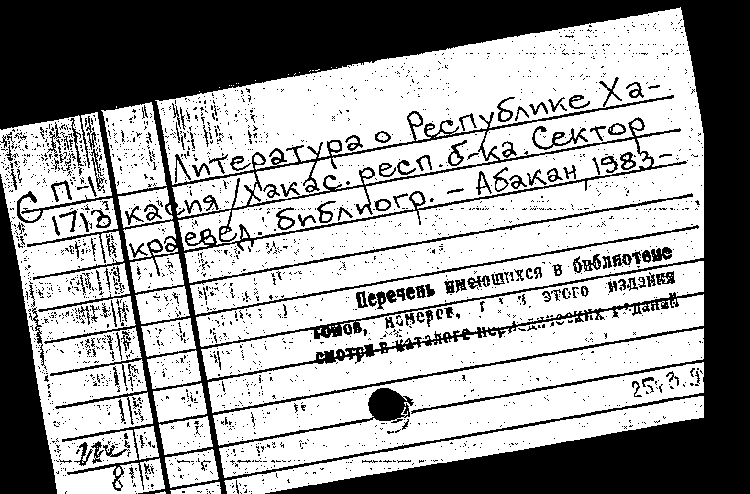 Литература о Республике Ха-
Є П-1
1713
касия /Хакас. респ. б-ка. Сектор
краевед. библиогр. – Абакан, 1983–
Перечень имеющихся в библиотеке
томов, номеров, этого издания
смотри в каталоге периодических изданий
25.3.9
8